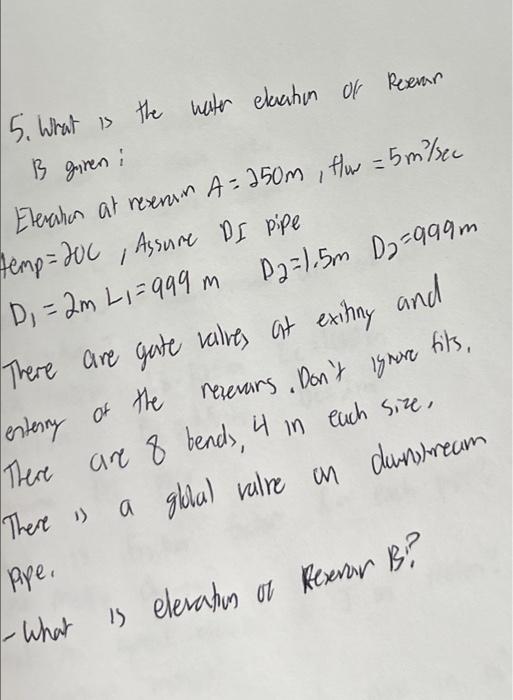 5. What is the water elevation of Reservoir
B given:
Elevation at reservoir A = 250m, flow = 5 m³/sec
temp = 20C, Assume DI pipe
D₁ = 2m L₁ = 999 m D₂ = 1.5m D₂ = 999m
There are gate valves at exiting and
entering of the reservoirs. Don't ignore fits.
There are 8 bends, 4 in each size.
There is a global valve on downstream
pipe.
- What is elevation of Reservoir B?